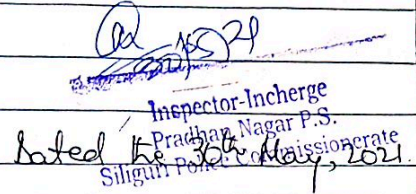 Inspector-Incherge
Pradhan Nagar P.S.
Siliguri Police Commissionerate
Dated the 30th May, 2021.